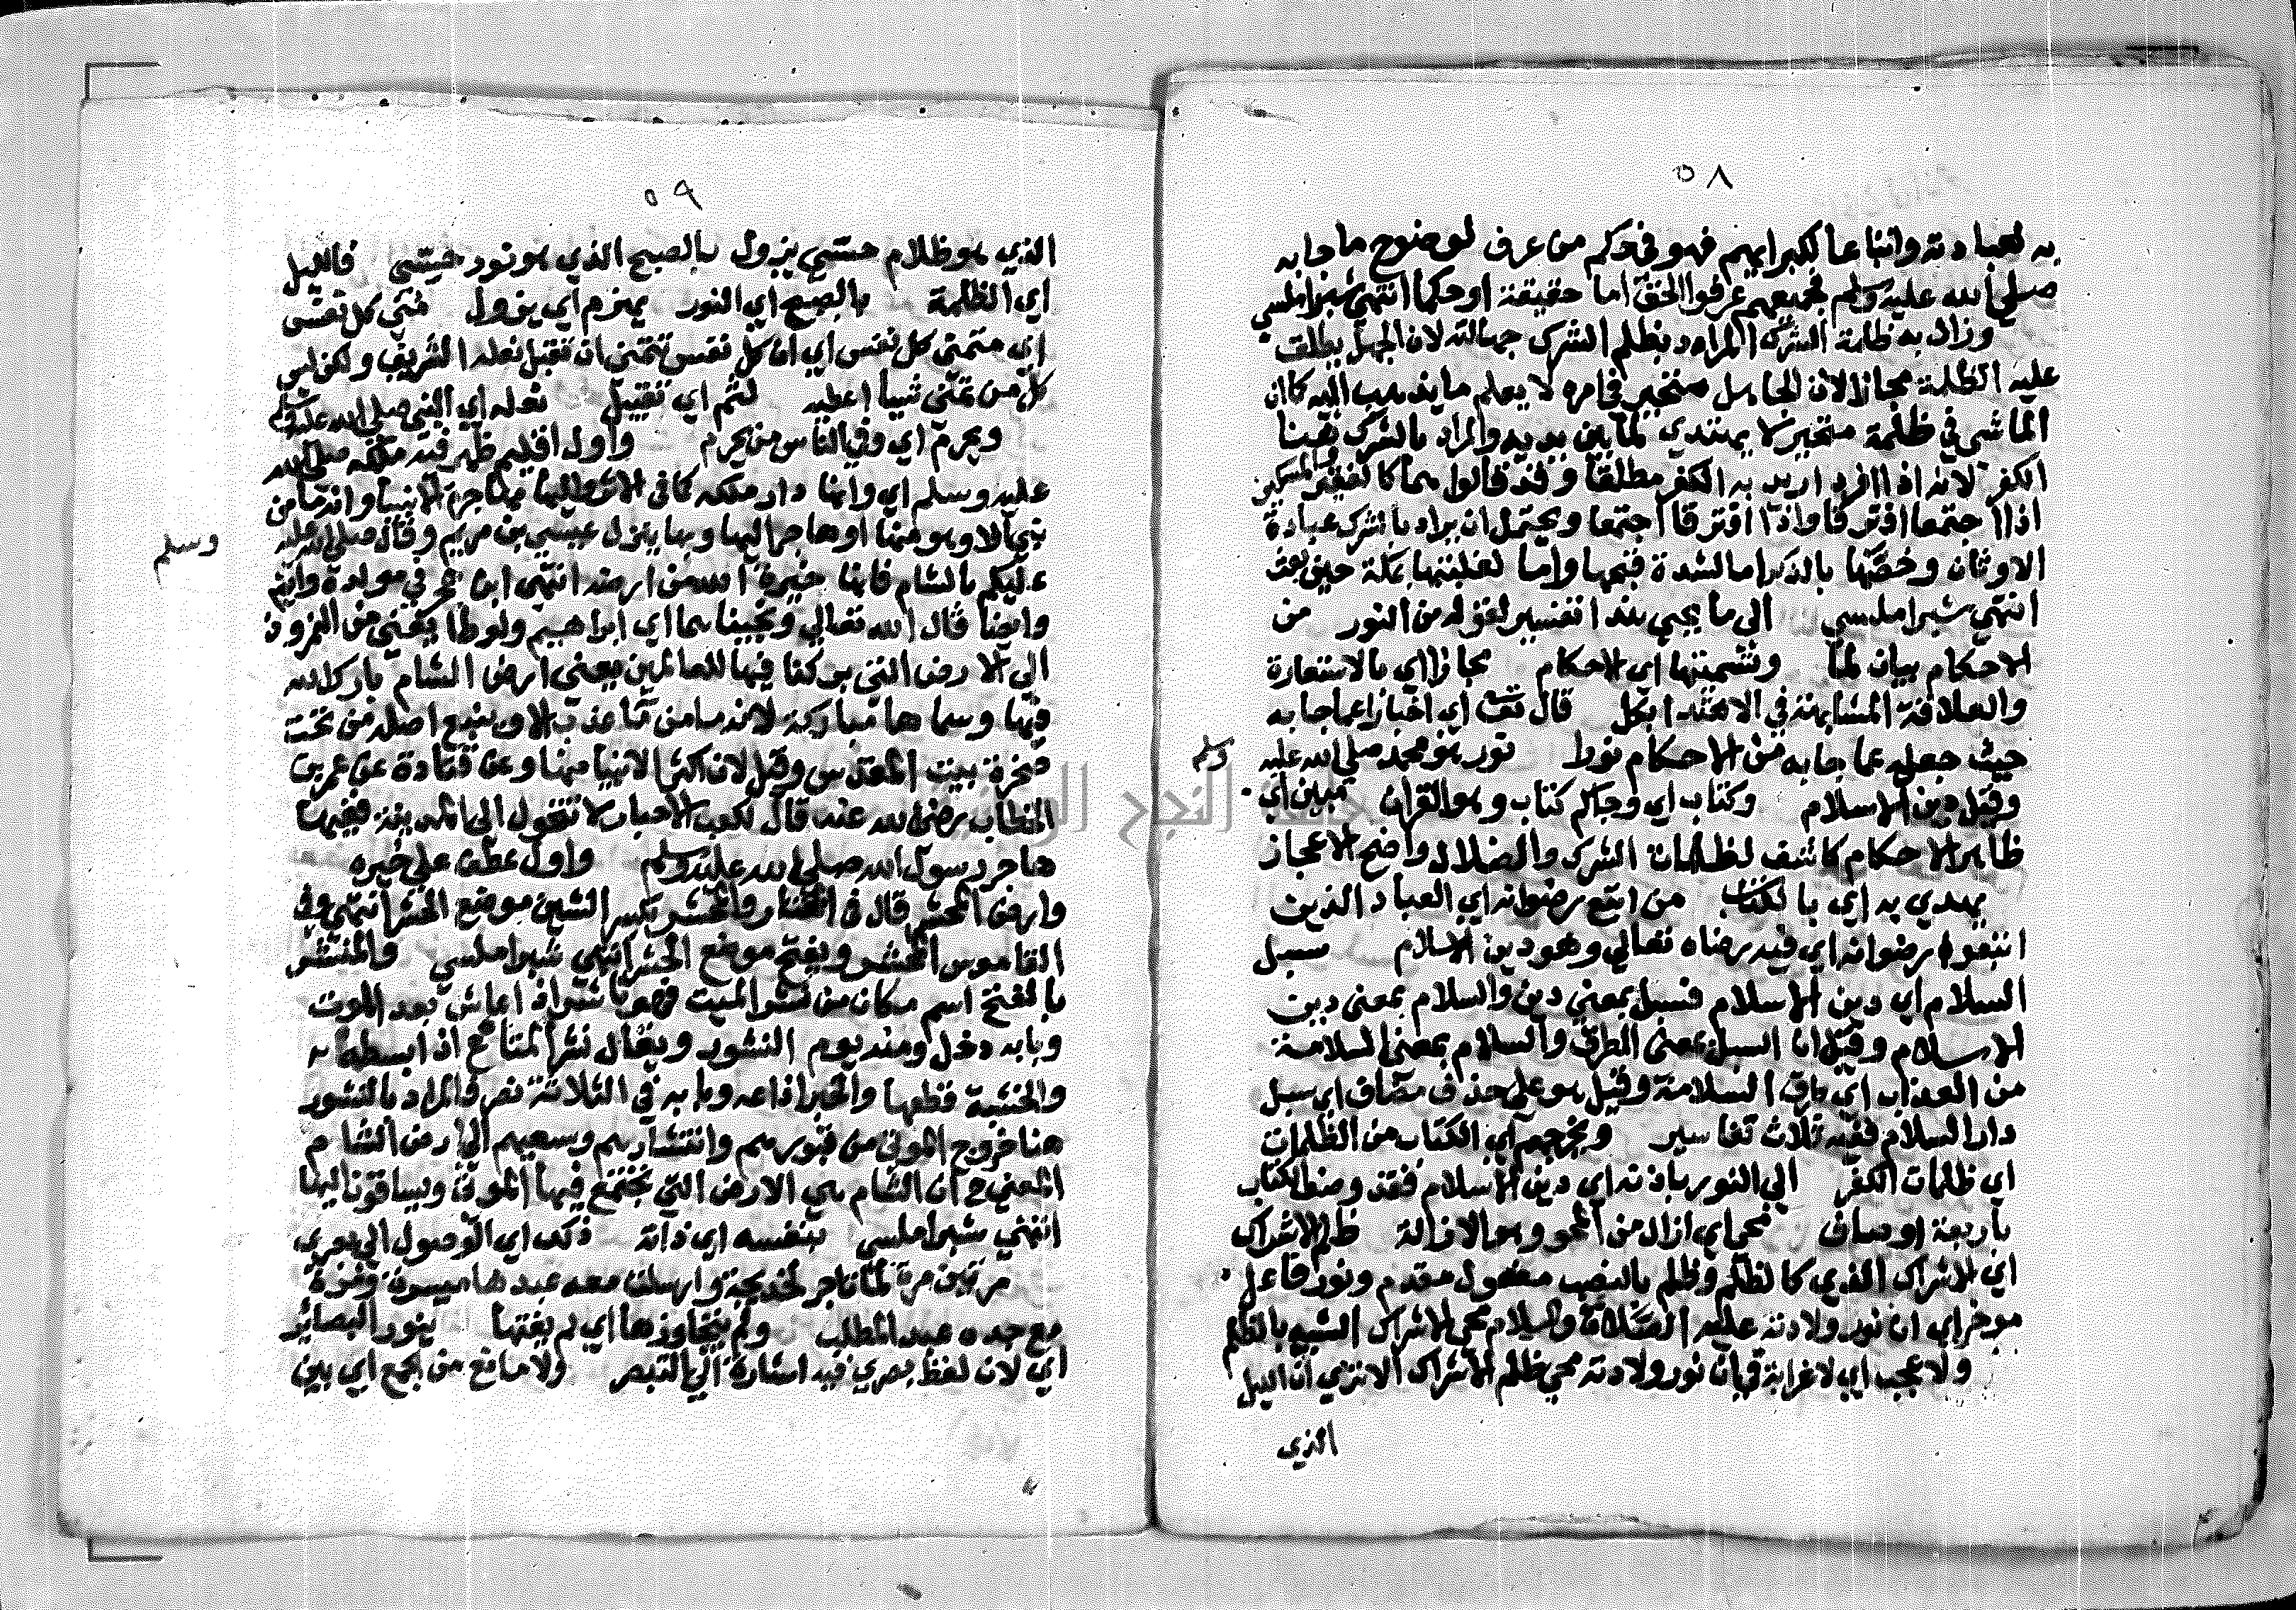 ٥٨
به لعباد ته واتباعا لكبرايهم فهو في حكم من عرف لوضوح ما جا به
صلى الله عليه وسلم فجميعهم عرفوا الحق اما حقيقة او حكما انتهى شبراملسي
وزال به ظلمة الشرك المراد بظلم الشرك جهالته لان الجهل يطلق
عليه الظلمة مجازا لان الجاهل متحير في امره لا يعلم ما يذهب اليه كما ان
الماشي في ظلمة متحير لا يهتدي لما بين يديه والمراد بالشرك هنا
الكفر لانه اذا افرد اريد به الكفر مطلقا وقد قالوا هما كالفقير والمسكين
اذا اجتمعا افترقا واذا افترقا اجتمعا ويحتمل ان يراد بالشرك عبادة
الاوثان وخصها بالذكر اما لشدة قبحها واما لغلبتها بمكة حين بعث
انتهى شبراملسي الى ما يحيي هذا تفسير لقوله من النور من
الاحكام بيان لما وتسميتها اي الاحكام مجازا اي بالاستعارة
والعلاقة المشابهة في الاهتدا بكل قال تعـ اي اخبارا عما جا به
حيث جعله عما جا به من الاحكام نورا نور هو محمد صلى الله عليه
وسلم
وقيل دين الاسلام وكتاب اي وجاكم كتاب وهو القران مبين اي
ظاهر الاحكام كاشف لظلمات الشرك والضلال واضح الاعجاز
يهدي به اي بالكتاب من اتبع رضوانه اي العباد الذين
اتبعوا رضوانه اي فيه رضاه تعالى وهو دين الاسلام سبل
السلام اي دين الاسلام فسبل بمعني دين والسلام بمعنى دين
الاسلام وقيل ان السبل بمعنى الطرق والسلام بمعنى السلامة
من العذاب اي طرق السلامة وقيل هو على حذف مضاف اي سبل
دار السلام ففيه ثلاث تفاسير ويخرجهم اي الكتاب من الظلمات
اي ظلمات الكفر الى النور باذنه اي دين الاسلام فقد وصف الكتاب
باربعة اوصاف محى اي ازال من المحو وهو الازالة ظلم الاشراك
اي الاشراك الذي كالظلم وظلم بالنصب مفعول مقدم ونور فاعل
موخر اي ان نور ولادته عليه الصلاة والسلام محى الاشراك الشبيه بالظلم
ولا عجب اي لا غرابة في ان نور ولادته محى ظلم الاشراك الا تري ان الليل
الذي
٥٩
الذي هو ظلام حسي يزول بالصبح الذي هو نور حسي فالليل
اي الظلمة بالصبح اي النور يهزم اي يزول منى كل نفس
اي متمنى كل نفس اي ان كل نفس تتمنى ان تقبل نعله الشريف ولكن ليس
كل من تمنى شيا اعطيه لثم اي تقبيل نعله اي النبي صلى الله عليه وسلم
ويحرم اي وفي الناس من يحرم واول اقليم ظهر فيه ملكه صلى الله
عليه وسلم اي وانها دار ملكه كما في الاثر وانها مهاجر الانبيا وانه ما من
نبي الا وهو منها او هاجر اليها وبها ينزل عيسي بن مريم وقال صلى الله عليه
وسلم
عليكم بالشام فانها خيرة الله من ارضه انتهى ابن حجر في مولده وانهم
وايضا قال الله تعالي ونجيناهما اي ابراهيم ولوطا يعني من النمرود
الى الارض التي بركنا فيها للعالمين يعني ارض الشام بارك الله
فيها وسماها مباركة لانه ما من ما عذب الا وينبع اصله من تحت
صخرة بيت المقدس وقيل لان اكثر الانبيا منها وعن قتادة عن عمر بن
الخطاب رضى الله عنه قال لكعب الاحبار لا تتحول الى المدينة ففيها
هاجر رسول الله صلى الله عليه وسلم واول عطف على خيره
وارض المحشر قال في المختار والمحشر بكسر الشين موضع الحشر انتهى وفي
القاموس المحشر ويفتح موضع الحشر انتهى شبراملسي والمنشر
بالفتح اسم مكان من نشر الميت فهو ناشر اذا عاش بعد الموت
وبابه دخل ومنه يوم النشور ويقال نشر المتاع اذا بسطه
والخشبة قطعها والخبر اذاعه وبابه في الثلاثة نصر فالمراد بالنشور
هنا خروج الموتى من قبورهم وانتشارهم وسعيهم الى ارض الشام
المعني ح ان الشام هي الارض التي تجتمع فيها الموتى ويساقون اليها
انتهي شبراملسي بنفسه اي ذاته ذكت اي الوصول الى بصرى
مرتين مرة لما تاجر لخديجة وارسلت معه عبدها ميسرة ومرة
مع جده عبد المطلب ولم يتجاوزها اي لم يفتها ينور البصائر
اي لان لفظ بصري فيه اشارة الى التبصر ولا مانع من الجمع اي بين